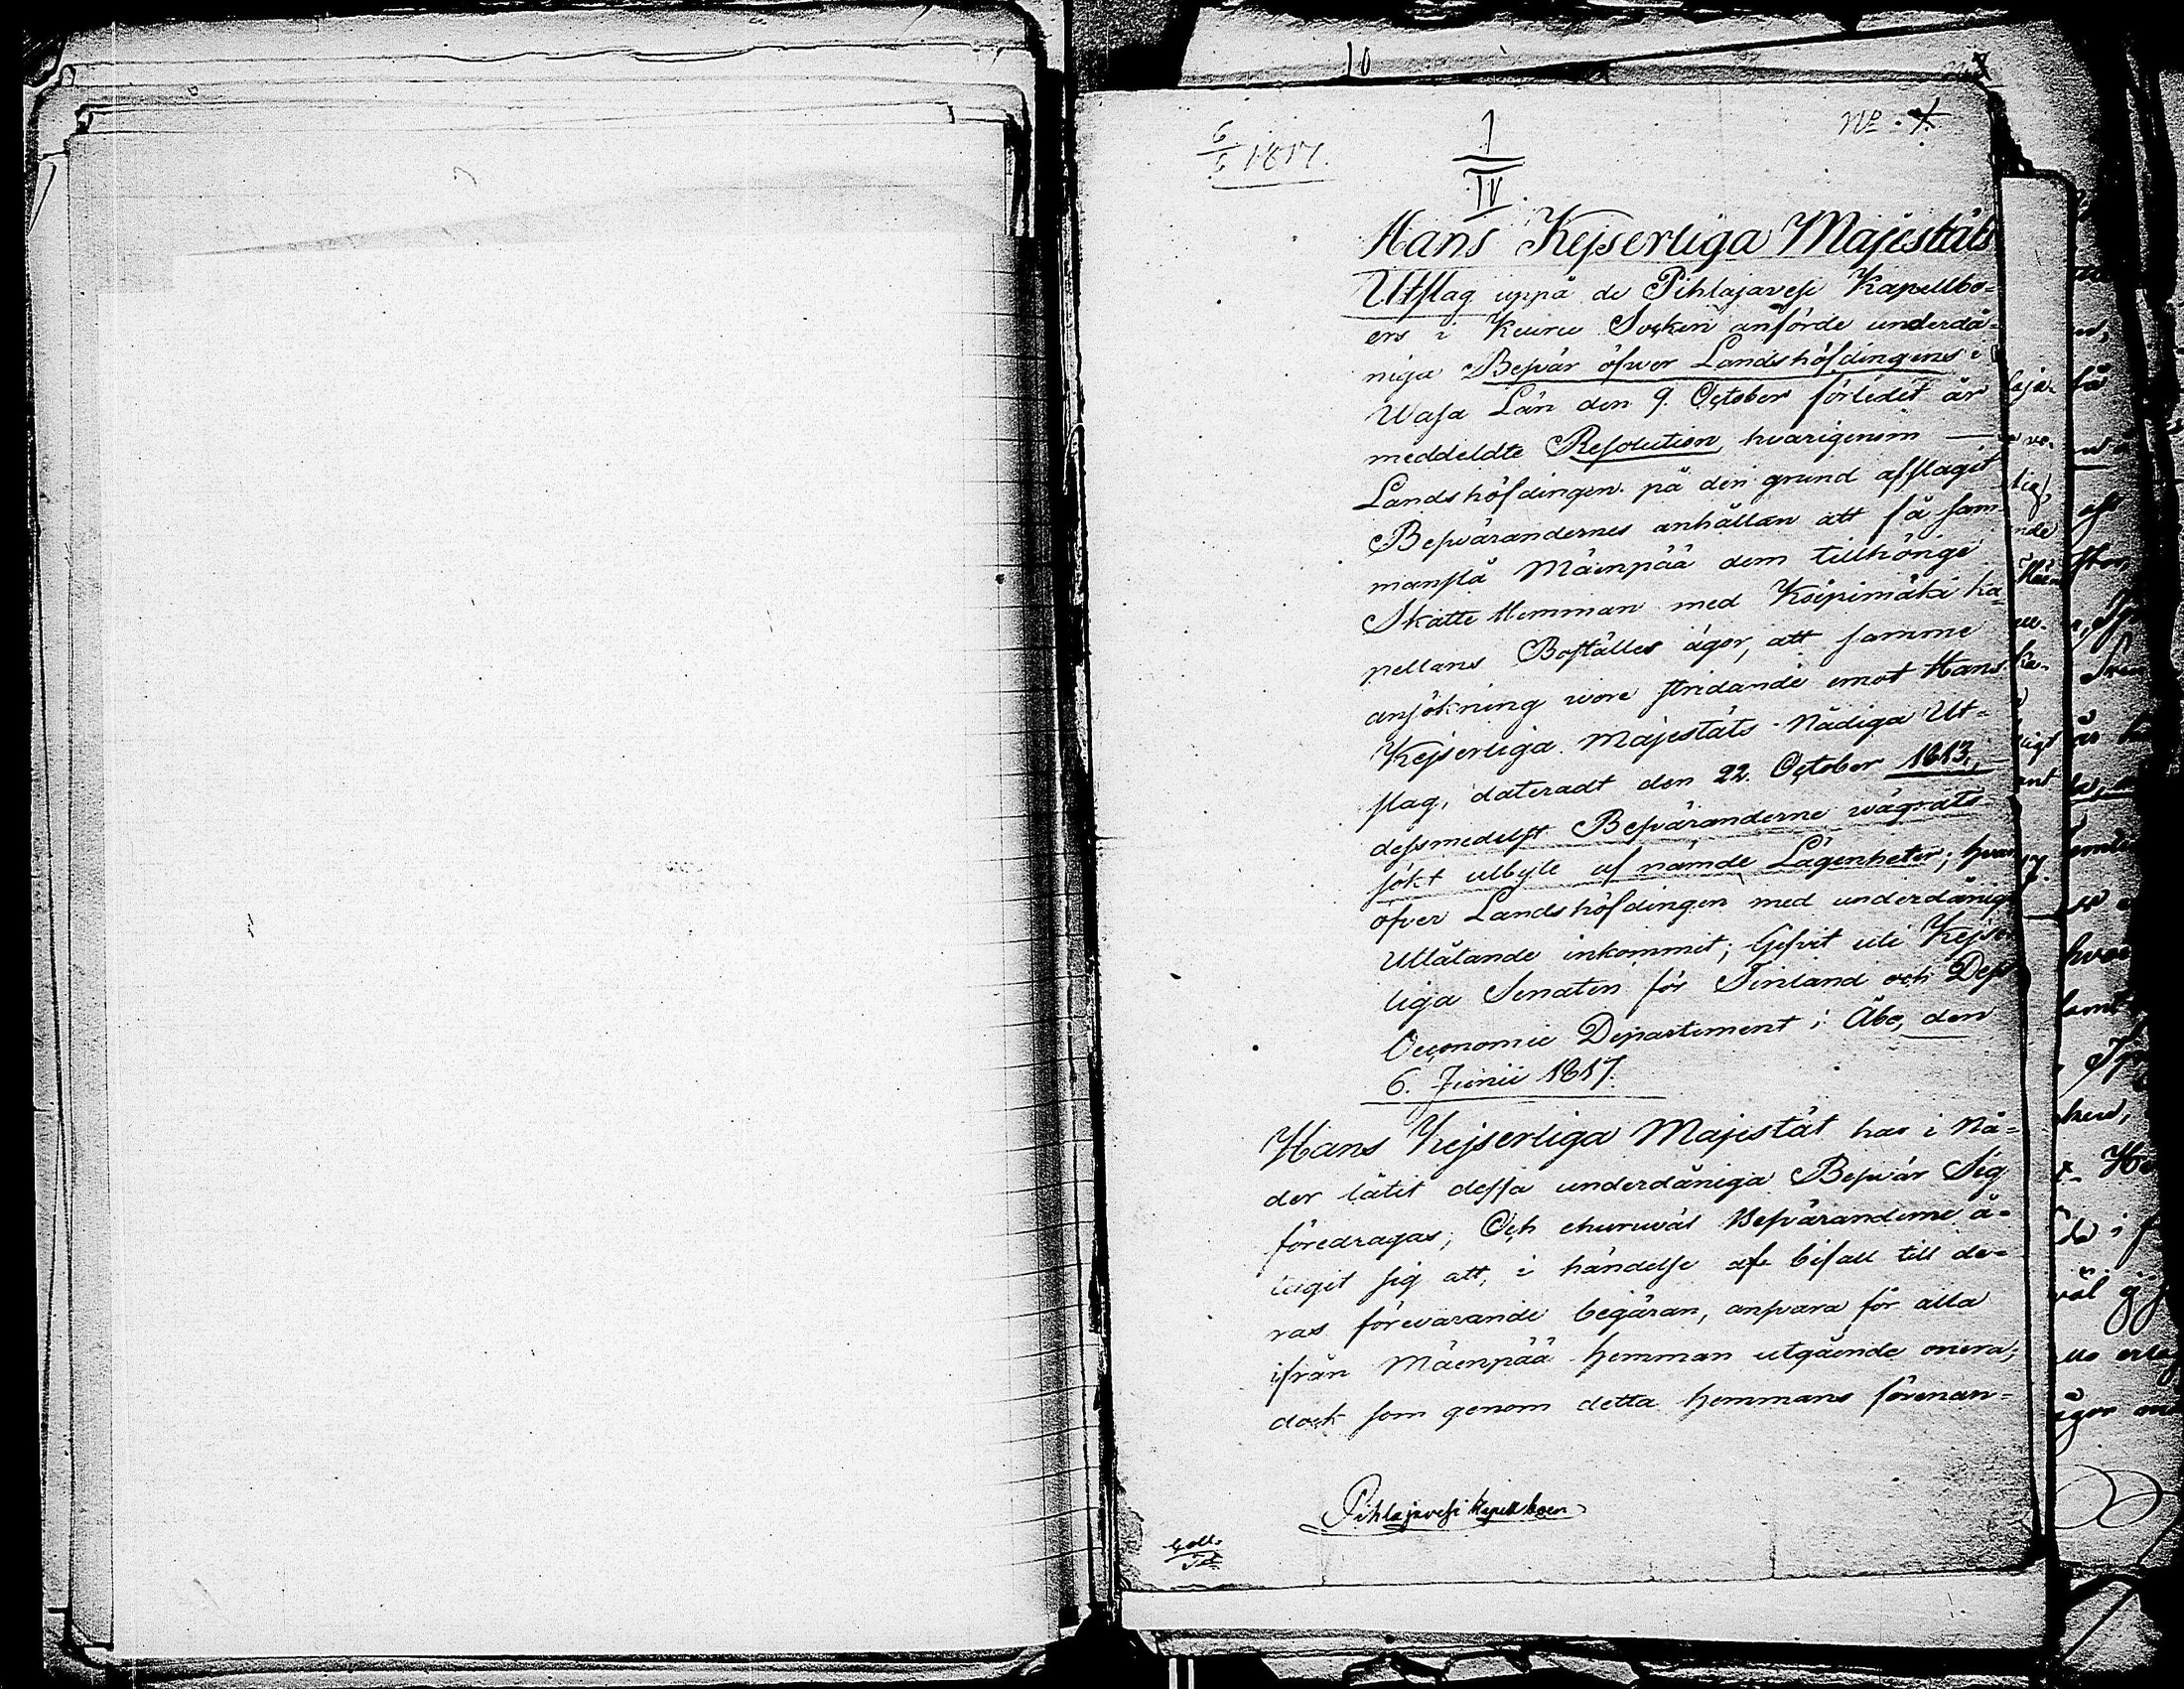 10
6/6 1817.
1/IV.
No. 7.
Hans Kejserliga Majestäts
Utslag uppå de Pihlajavesi Kapellbo=
ers i Keuru Socken anförde underdå=
niga Besvär öfver Landshöfdingens i
Wasa Län den 9. October förledit år
meddeldte Resolution, hvarigenom —
Landshöfdingen på den grund afslagit
Besvärandernes anhållan att få sam=
manslå Mäenpää dem tillhörige
Skatte Hemman med Köipimäki Ka=
pellans Boställes ägor, att samme
ansökning vore stridande emot Hans
Kejserliga Majestäts Nådiga Ut=
slag, dateradt den 22. October 1813,
dessmedelst Besväranderne vägrats
sökt utbyte af nämde Lägenheter; hvar
öfver Landshöfdingen med underdånigt
Utlåtande inkommit; Gifvit uti Kejser
liga Senaten för Finland och Dess
Oeconomie Departement i Åbo, den
6. Junii 1817.
Hans Kejserliga Majestät har i Nå=
der låtit dessa underdåniga Besvär Sig
föredragas; Och ehuruväl Besväranderne å=
tagit sig att, i händelse af bifall till de=
ras förevarande begäran, ansvara för alla
ifrån Mäenpää hemman utgående onera;
dock som genom detta hemmans förenan=
Pihlajavesi Kapellboen
Coll.